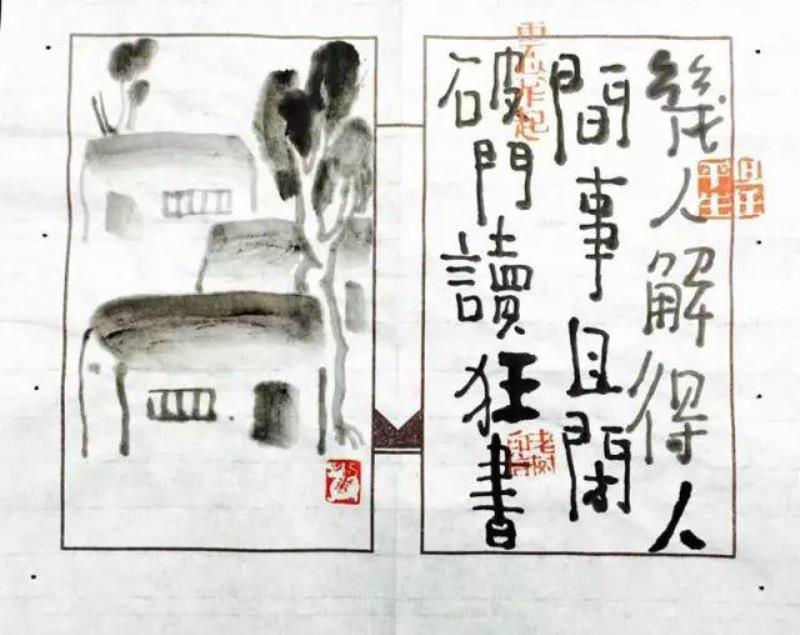 幾人解得人
間事且閉
破門讀狂書